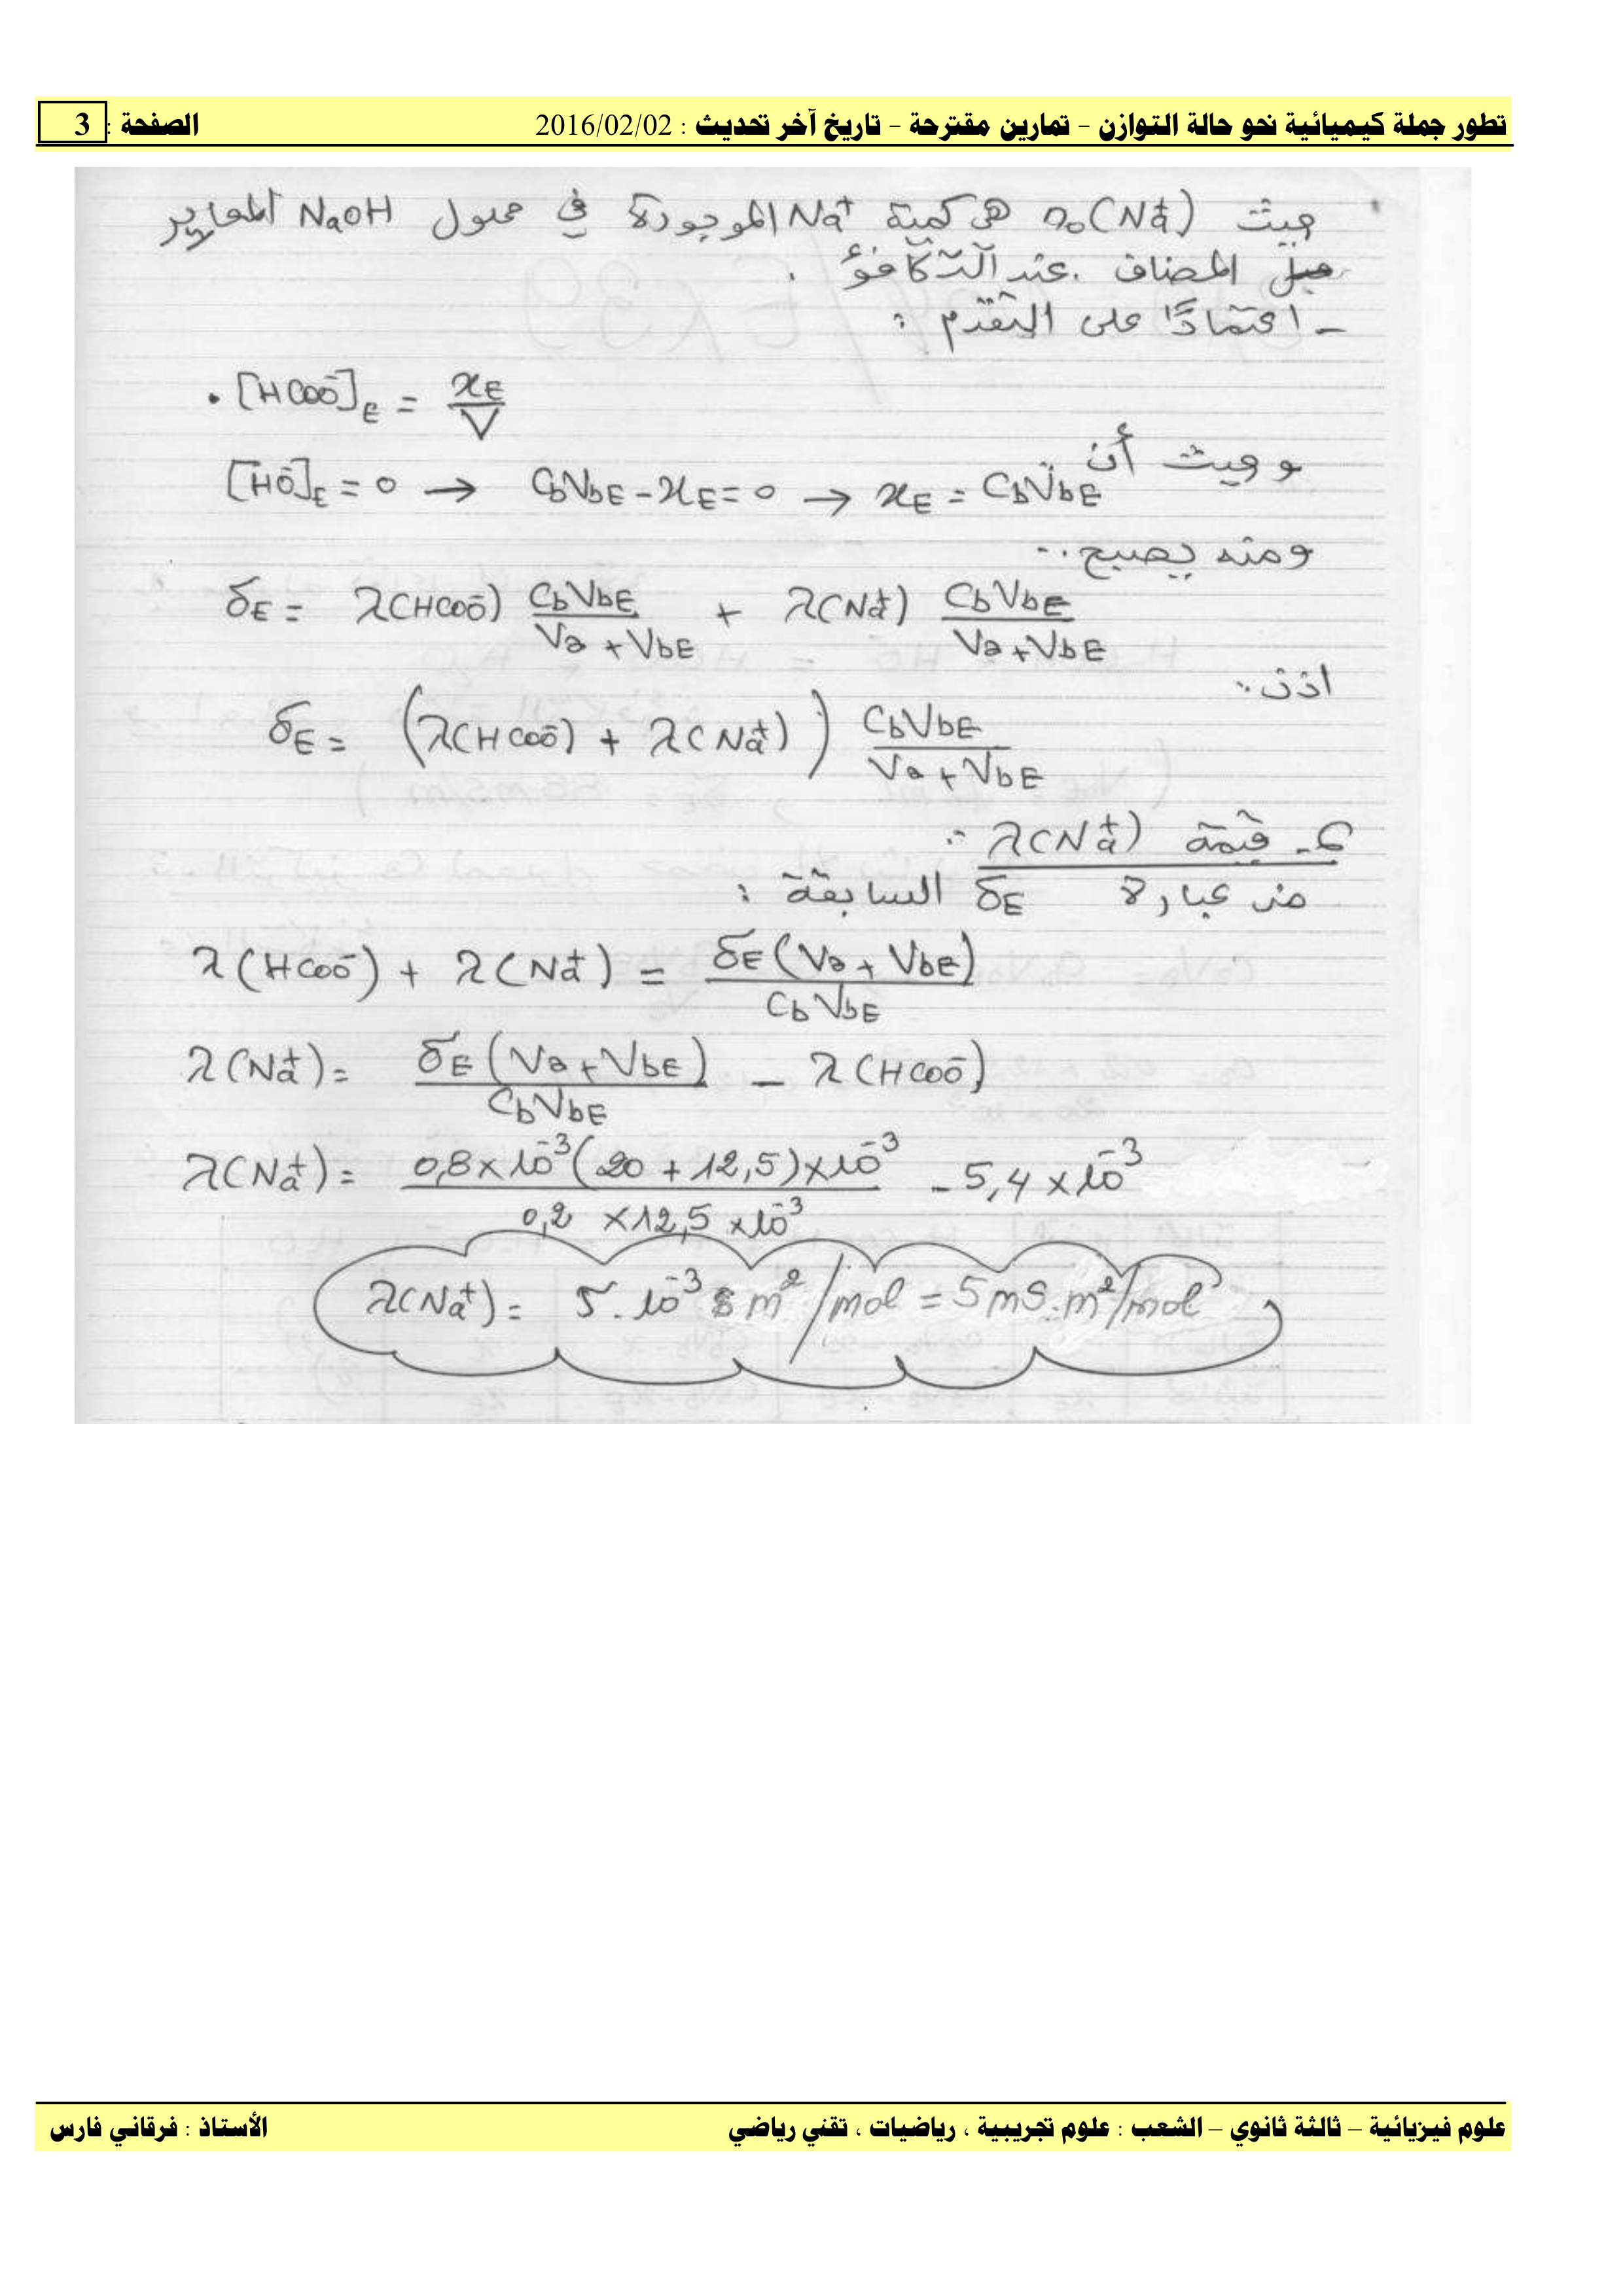 تطور جملة كيميائية نحو حالة التوازن – تمارين مقترحة – تاريخ آخر تحديث : 2016/02/02 الصفحة : 3
حيث n₀(Na⁺) هي كمية Na⁺ الموجودة في محلول NaOH المعاير
المضاف عند التكافؤ .
- اعتمادًا على التقدم :
• [HCOO⁻]E = xE / V
وحيث أن
[HO⁻]E = 0 → CbVbE - xE = 0 → xE = CbVbE
ومنه يصبح :
δE = λ(HCOO⁻) CbVbE / (Va + VbE) + λ(Na⁺) CbVbE / (Va + VbE)
اذن :
δE = (λ(HCOO⁻) + λ(Na⁺)) CbVbE / (Va + VbE)
- قيمة λ(Na⁺) :
من عبارة δE السابقة :
λ(HCOO⁻) + λ(Na⁺) = δE (Va + VbE) / CbVbE
λ(Na⁺) = δE (Va + VbE) / CbVbE - λ(HCOO⁻)
λ(Na⁺) = 0,8 × 10⁻³ (20 + 12,5) × 10⁻³ / 0,2 × 12,5 × 10⁻³ - 5,4 × 10⁻³
λ(Na⁺) = 5 . 10⁻³ S m² / mol = 5 mS . m² / mol
علوم فيزيائية – ثالثة ثانوي – الشعب : علوم تجريبية ، رياضيات ، تقني رياضي الأستاذ : فرقاني فارس